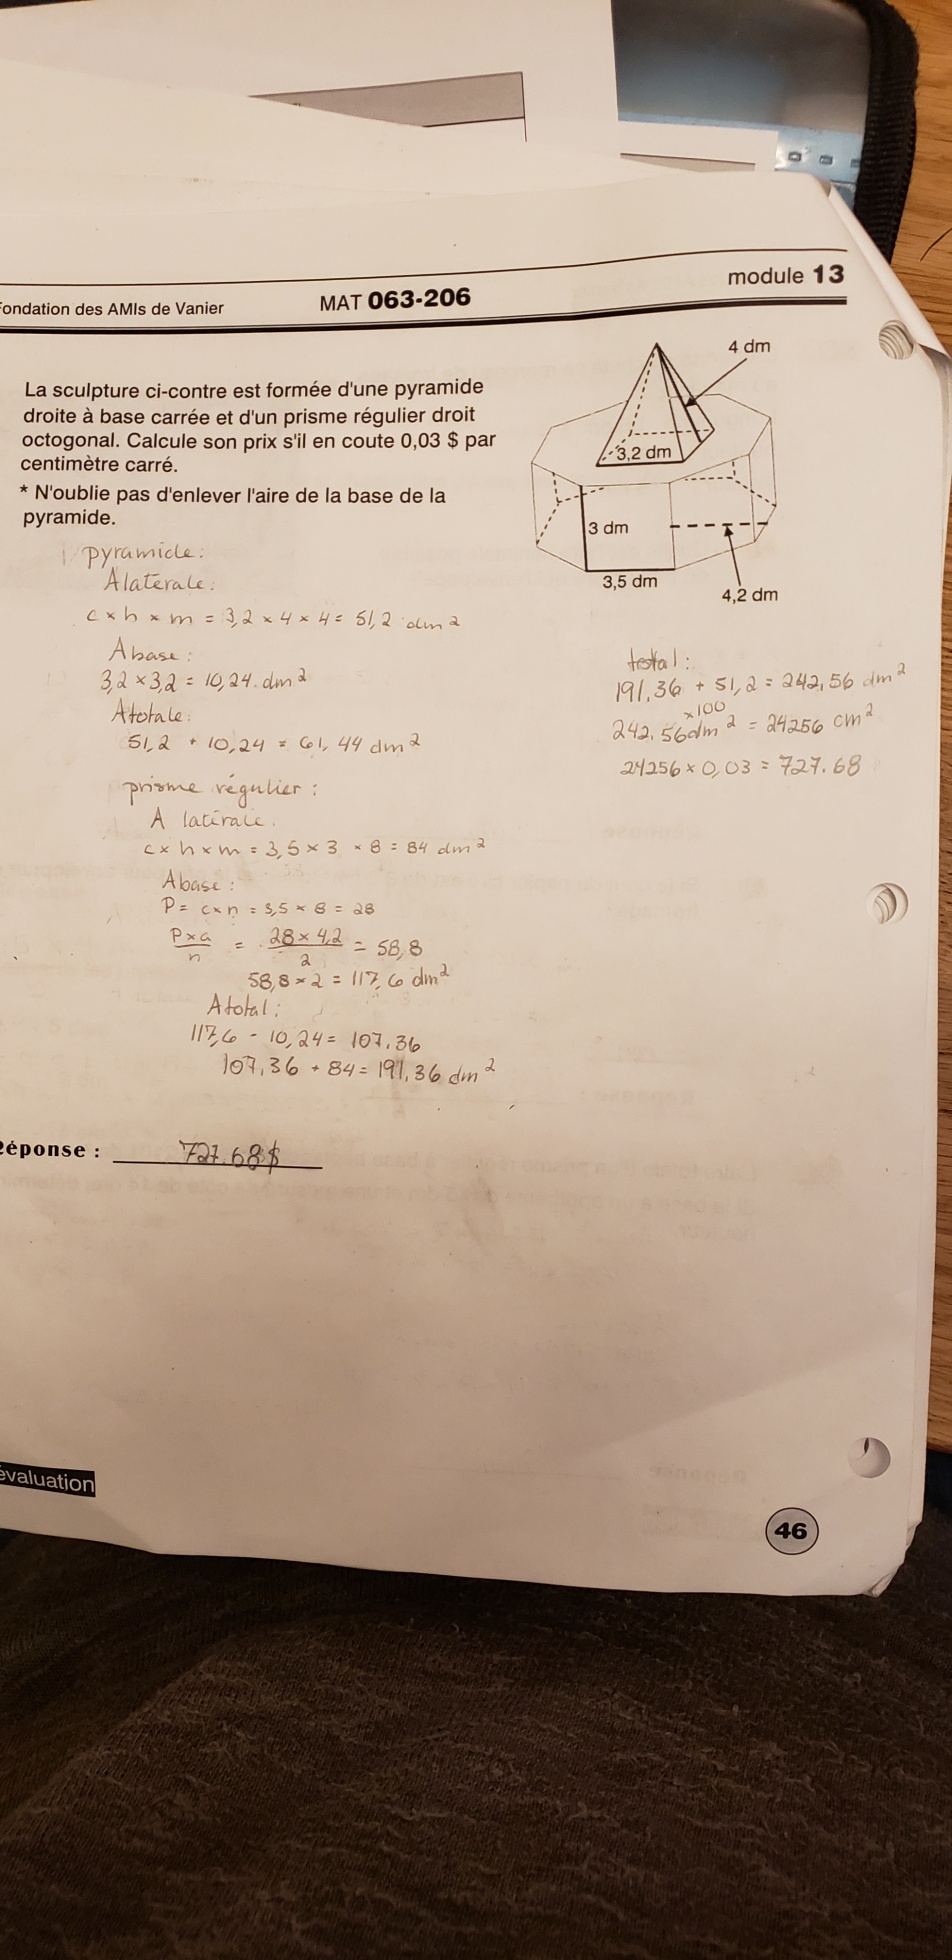 Fondation des AMIs de Vanier MAT 063-206 module 13
La sculpture ci-contre est formée d'une pyramide
droite à base carrée et d'un prisme régulier droit
octogonal. Calcule son prix s'il en coute 0,03 $ par
centimètre carré.
* N'oublie pas d'enlever l'aire de la base de la
pyramide.
4 dm
3,2 dm
3 dm
3,5 dm
4,2 dm
pyramide:
A latérale:
c × h × m = 3,2 × 4 × 4 = 51,2 dm2
A base:
3,2 × 3,2 = 10,24 dm2
A totale:
51,2 + 10,24 = 61,44 dm2
prisme régulier:
A latérale:
c × h × m = 3,5 × 3 × 8 = 84 dm2
A base:
P = c × n = 3,5 × 8 = 28
P×a / n = 28 × 4,2 / 2 = 58,8
58,8 × 2 = 117,6 dm2
A total:
117,6 - 10,24 = 107.36
107,36 + 84 = 191,36 dm2
total:
191,36 + 51,2 = 242,56 dm2
×100
242,56 dm2 = 24256 cm2
24256 × 0,03 = 727.68
Réponse : 727.68$
évaluation
46